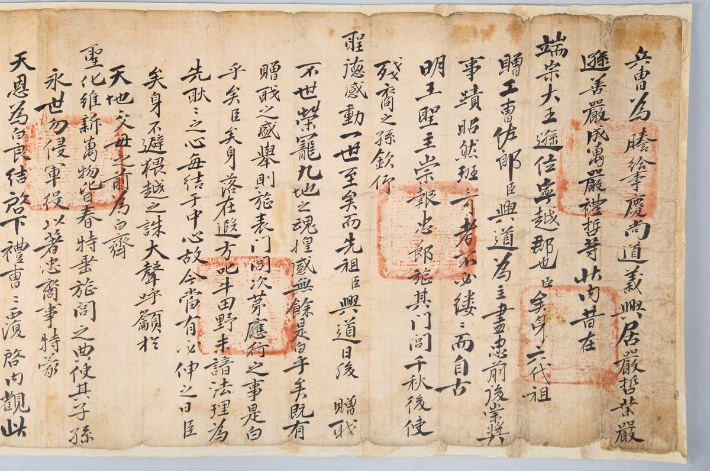 兵曹為謄給事慶尚道義興居嚴哲業嚴
遜善嚴成萬嚴禮哲等狀內昔在
端宗大王遜位寧越郡也臣矣身六代祖
贈工曹佐郎臣興道為主盡忠前後崇奬
事蹟昭然班 者不必縷縷而自古
明王聖主崇報忠節旌其門閭千秋後使
殘裔之孫欽仰
聖德感動一世至矣而先祖臣興道日後 贈職
不世榮寵九地之魂惶感無餘是白乎矣既有
贈職之盛舉則旌表門閭次第應行之事是白
乎矣臣矣身落在遐方叱牛田野未諳法理為
先耿耿之心每結于中心故今當有必伸之日臣
矣身不避猥越之誅大聲呼籲於
天地父母之前為白齊
聖化維新萬物皆春特垂旌閭之典使其子孫
永世勿侵軍役以奬忠裔事特蒙
天恩為白良結啓下禮曹曹覆啓內觀此